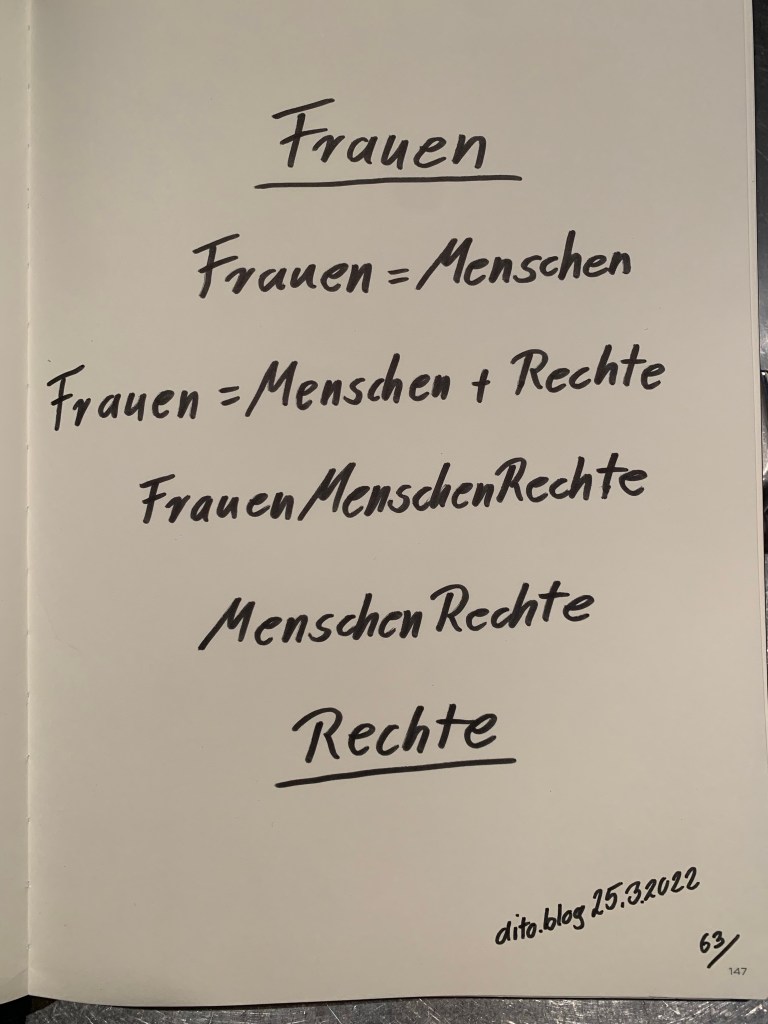 Frauen
Frauen = Menschen
Frauen = Menschen + Rechte
FrauenMenschenRechte
MenschenRechte
Rechte
dito.blog 25.3.2022
63/
147